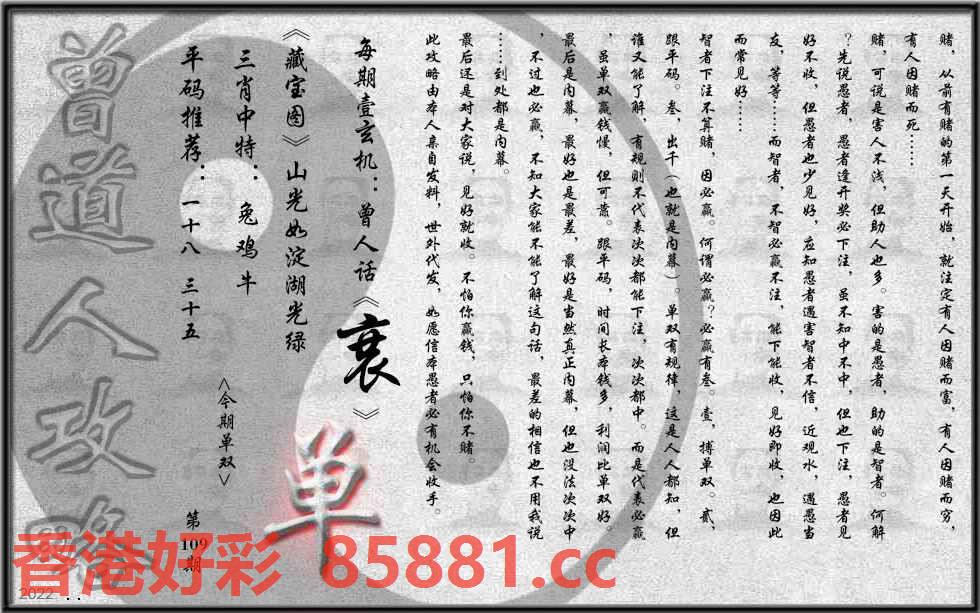 赌，从前有赌的第一天开始，就注定有人因赌而富，有人因赌而穷，
有人因赌而死……
赌，可说是害人不浅，但助人也多。害的是愚者，助的是智者。何解
？先说愚者，愚者逢开奖必下注，虽不知中不中，但也下注，愚者见
好不收，但愚者也少见好，应知愚者遇害智者不信，近观水，遇愚当
友，等等……而智者，不智必赢不注，能下能收，见好即收，也因此
而常见好……
智者下注不算赌，因必赢。何谓必赢？必赢有叁。壹，搏单双。贰，
跟平码。叁，出千（也就是内幕）。单双有规律，这是人人都知，但
谁又能了解，有规则不代表次次都能下注，次次都中。而是代表必赢
，虽单双赢钱慢，但可靠。跟平码，时间长本钱多，利润比单双好。
最后是内幕，最好也是最差，最好是当然真正内幕，但也没法次次中
，不过也必赢，不知大家能不能了解这句话，最差的相信也不用我说
……到处都是内幕。
最后还是对大家说，见好就收。不怕你赢钱，只怕你不赌。
此攻略由本人亲自发料，世外代发，如愿信本愚者必有机会收手。
每期壹玄机：曾人话《衰》
《藏宝图》山光如淀湖光绿
三肖中特：兔鸡牛
平码推荐：一十八 三十五
<今期单双>
单
第109期
曾道人攻略
香港好彩 85881.cc
2022